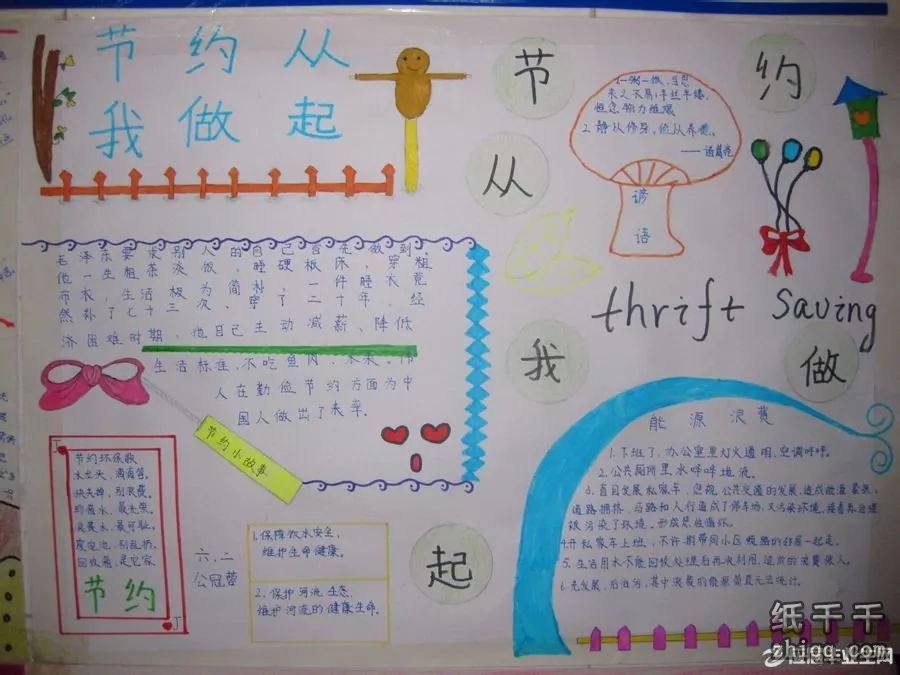 节约从
我做起
节
约
从
我
做
起
1.一粥一饭,当思
来之不易;半丝半缕,
恒念物力维艰
2.静以修身,俭以养德。
——诸葛亮
谚
语
thrift saving
毛泽东要求别人的自己首先做到,
他一生粗茶淡饭,睡硬板床,穿粗
布衣,生活极为简朴,一件睡衣竟
然补了七十三次、穿了二十年。经
济困难时期,他自己主动减薪、降低
生活标准,不吃鱼肉、水果。伟
人在勤俭节约方面为中
国人做出了表率。
节约小故事
节约环保歌
水龙头,滴滴答,
快关掉,别浪费。
珍惜水,最光荣。
浪费水,最可耻。
废电池,别乱扔,
回收箱,是它家
节约
六.二
1.保障饮水安全,
维护生命健康。
2.保护河流生态,
维护河流的健康生命。
能源浪费
1.下班了,办公室里灯火通明,空调呼呼。
2.公共厕所里水哗哗地流。
3.盲目发展私家车,忽视公共交通的发展,造成能源紧张,
道路拥挤,马路和人行道成了停车场,又污染环境,接着去治理
被污染了环境,形成恶性循环。
4.开私家车上班,不许
5.生活用水不能回收处理后再次利用,造成的浪费惊人。
6.先发展,后治污,其中浪费的能源简直无法统计。
纸千千
zhiqq.com